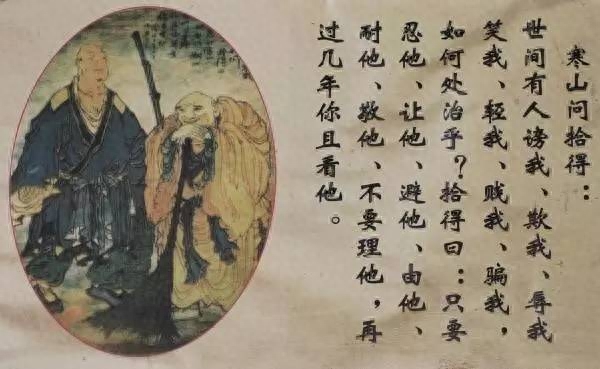 寒山问拾得：
世间有人谤我、欺我、辱我
笑我、轻我、贱我、骗我，
如何处治乎？拾得曰：只要
忍他、让他、避他、由他、
耐他、敬他、不要理他，再
过几年你且看他。